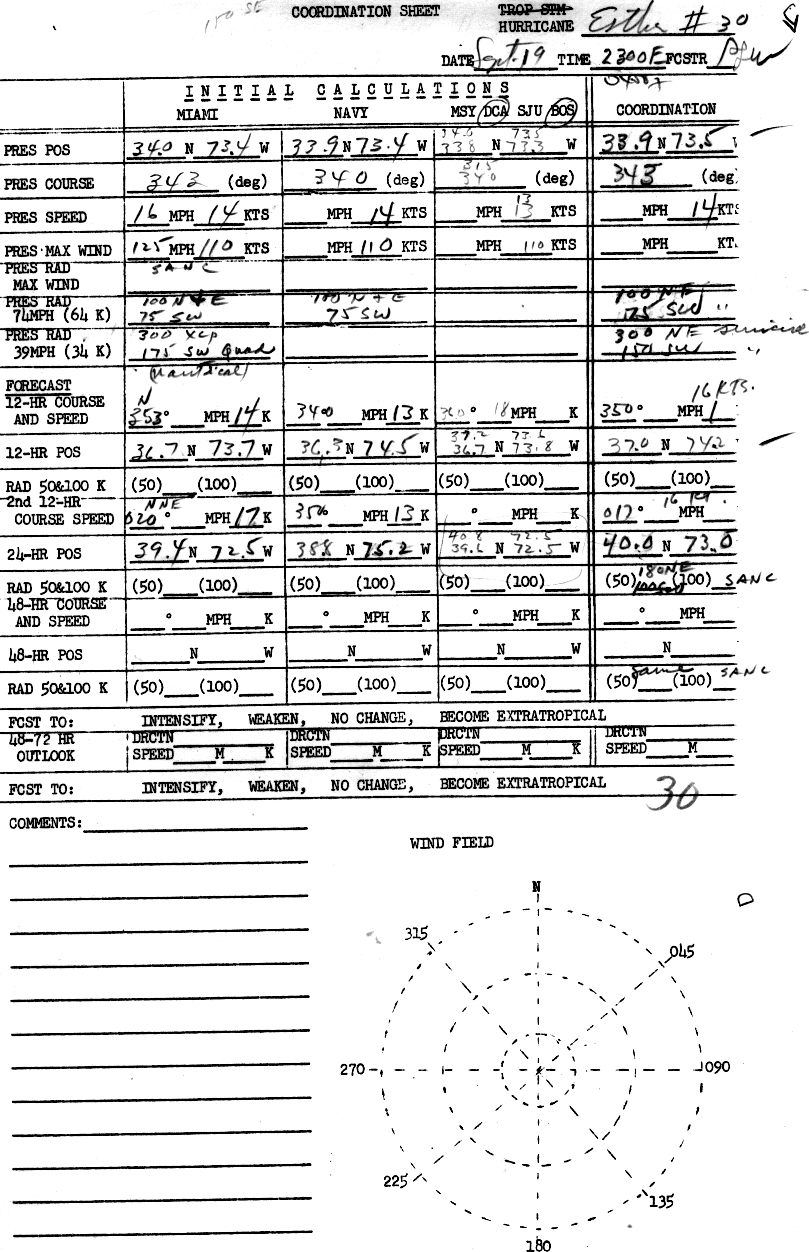 150 SE
COORDINATION SHEET TROP STM
HURRICANE Esther # 30
DATE Sept. 19 TIME 2300E FCSTR
0400Z
INITIAL CALCULATIONS
MIAMI NAVY MSY DCA SJU BOS COORDINATION
34.0 73.5
PRES POS 34.0 N 73.4 W 33.9 N 73.4 W 33.8 N 73.3 W 33.9 N 73.5 W
315
PRES COURSE 343 (deg) 340 (deg) 340 (deg) 343 (deg
13
PRES SPEED 16 MPH 14 KTS MPH 14 KTS MPH 13 KTS MPH 14 KTS
PRES MAX WIND 125 MPH 110 KTS MPH 110 KTS MPH 110 KTS MPH KT
PRES RAD SANC
MAX WIND
PRES RAD 100 N + E 100 N + E 100 NE
74MPH (64 K) 75 SW 75 SW 75 SW "
PRES RAD 300 XCP 300 NE
39MPH (34 K) 175 SW Quad 150 SW "
(nautical)
FORECAST
12-HR COURSE N 16 KTS.
AND SPEED 353° MPH 14 K 340° MPH 13 K 360° 18 MPH K 350° MPH
39.2 73.6
12-HR POS 36.7 N 73.7 W 36.3 N 74.5 W 36.7 N 73.8 W 37.0 N 74.2
RAD 50&100 K (50) (100) (50) (100) (50) (100) (50) (100)
2nd 12-HR NNE 16 KT.
COURSE SPEED 020° MPH 17 K 350 MPH 13 K ° MPH K 017° MPH
40.8 72.5
24-HR POS 39.4 N 72.5 W 38.8 N 75.2 W 39.6 N 72.5 W 40.0 N 73.0
180 NE
RAD 50&100 K (50) (100) (50) (100) (50) (100) (50) (100) SANC
48-HR COURSE
AND SPEED ° MPH K ° MPH K ° MPH K ° MPH
48-HR POS N W N W N W N
same SANC
RAD 50&100 K (50) (100) (50) (100) (50) (100) (50) (100)
FCST TO: INTENSIFY, WEAKEN, NO CHANGE, BECOME EXTRATROPICAL
48-72 HR DRCTN DRCTN DRCTN DRCTN
OUTLOOK SPEED M K SPEED M K SPEED M K SPEED M
FCST TO: INTENSIFY, WEAKEN, NO CHANGE, BECOME EXTRATROPICAL
30
COMMENTS:
WIND FIELD
N
315 045
270 090
225 135
180